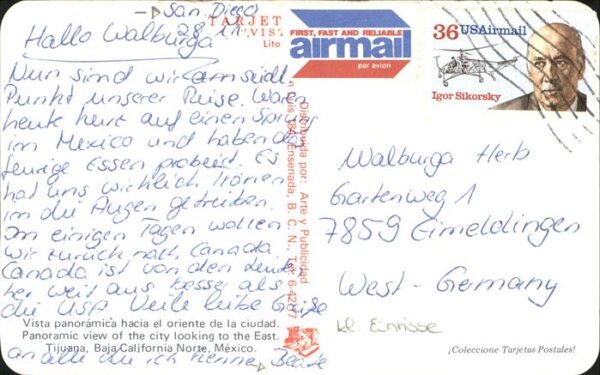 San Diego
28.11.
Hallo Walburga
TARJET
VIST
Lito
FIRST, FAST AND RELIABLE
airmail
par avion
36 USAirmail
Igor Sikorsky
Nun sind wir am südl.
Punkt unserer Reise. Waren
heute kurz auf einen Sprung
in Mexico und haben das
feurige Essen probiert. Es
hat uns wirklich Tränen
in die Augen getrieben.
In einigen Tagen wollen
wir zurück nach Canada.
Canada ist von den Leuten
her weit aus besser als
die USA Viele liebe Grüße
an alle die ich kenne Beate
Distribuida por: Arte y Publicidad
Ensenada, B. C. N., Tel. 6-42-87
Walburga Herb
Gartenweg 1
7859 Eimeldingen
West-Germany
Vista panorámica hacia el oriente de la ciudad.
Panoramic view of the city looking to the East.
Tijuana, Baja California Norte, México.
¡Coleccione Tarjetas Postales!